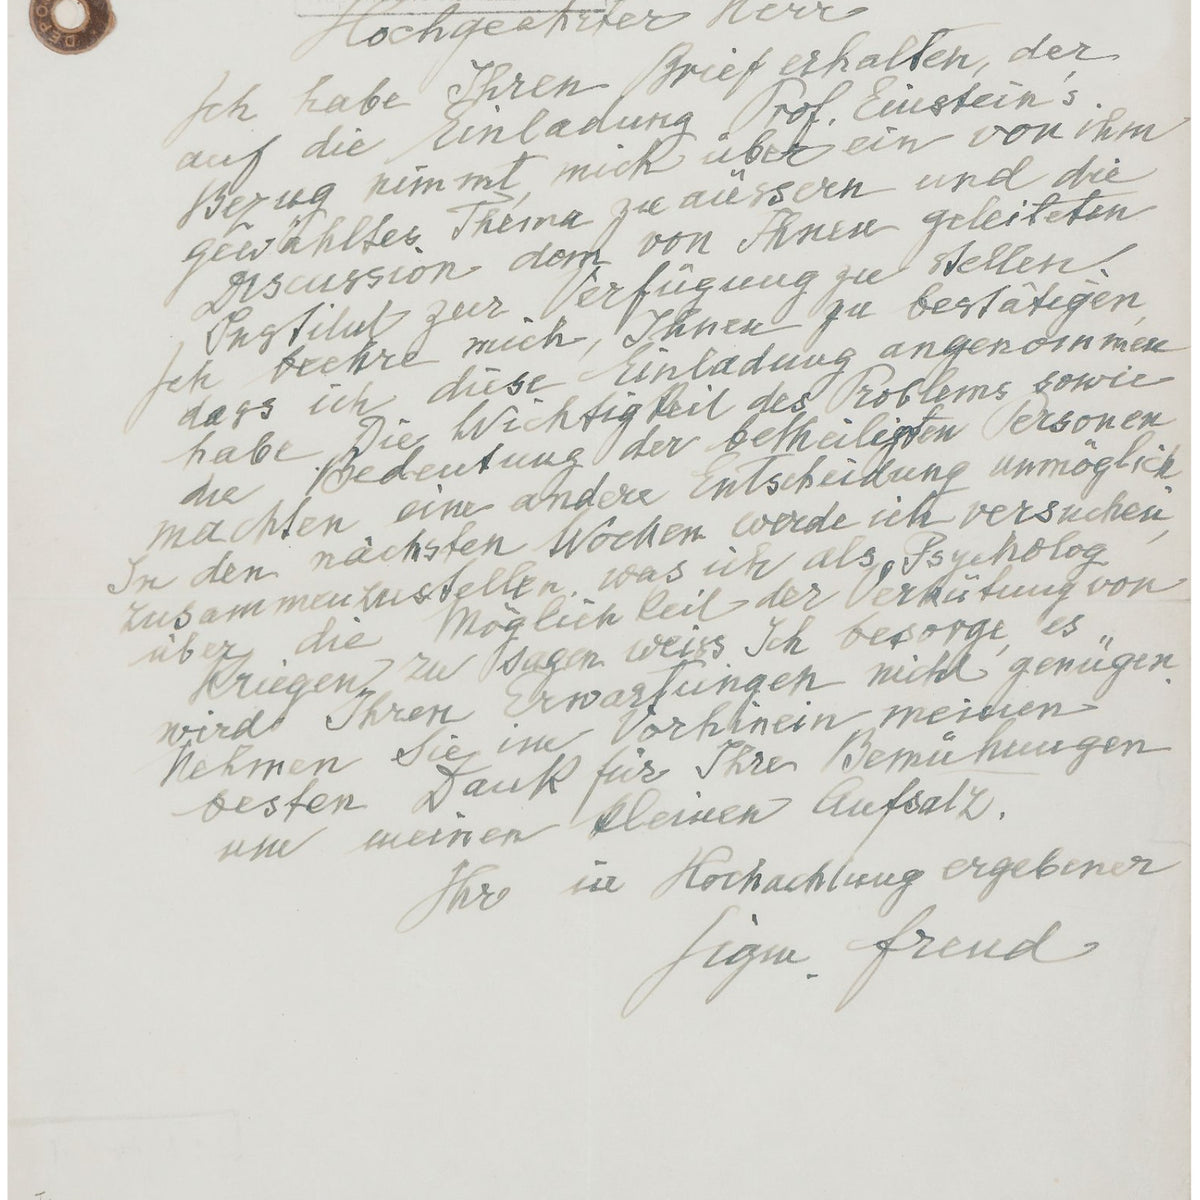 Hochgeehrter Herr
Ich habe Ihren Brief erhalten, der
auf die Einladung Prof. Einstein's
Bezug nimmt, mich über ein von ihm
gewähltes Thema zu äussern und die
Discussion dem von Ihnen geleiteten
Institut zur Verfügung zu stellen.
Ich beehre mich, Ihnen zu bestätigen,
dass ich diese Einladung angenommen
habe. Die Wichtigkeit des Problems sowie
die Bedeutung der betheiligten Personen
machten eine andere Entscheidung unmöglich
In den nächsten Wochen werde ich versuchen,
zusammenzustellen, was ich als Psycholog
über die Möglichkeit der Verhütung von
Kriegen zu sagen weiss. Ich besorge, es
wird Ihren Erwartungen nicht genügen.
Nehmen Sie im Vorhinein meinen
besten Dank für Ihre Bemühungen
um meinen kleinen Aufsatz.
Ihr in Hochachtung ergebener
Sigm. Freud